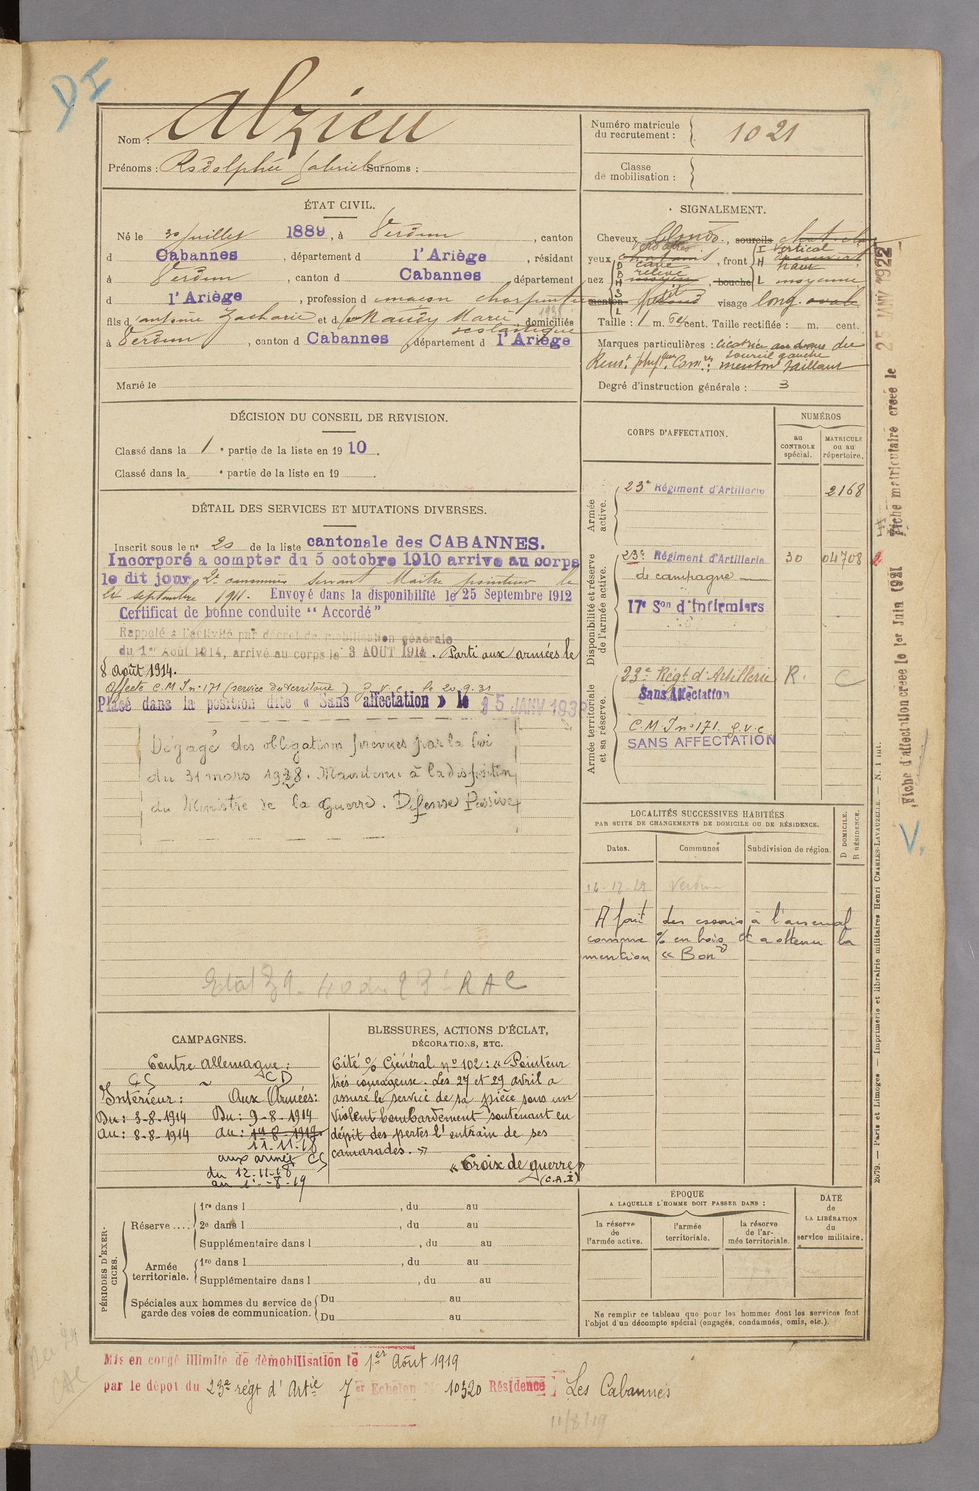 DI
Nom : Alzieu
Prénoms : Rodolphe Gabriel Surnoms :
Numéro matricule du recrutement : 1021
Classe de mobilisation :
ÉTAT CIVIL.
Né le 30 juillet 1889, à Verdun, canton
d Cabannes, département d l'Ariège, résidant
à Verdun, canton d Cabannes département
d l'Ariège, profession d maçon charpentier
fils d antoine Zacharie et d Naudy Marie scolastique, domiciliés
à Verdun, canton d Cabannes département d l'Ariège
Marié le
SIGNALEMENT.
Cheveux blonds, sourcils
yeux, front vertical
nez, bouche moyenne
menton visage long ovale
Taille : 1 m. cent. Taille rectifiée : m. cent.
Marques particulières : cicatrice au dessus du
sourcil gauche
menton saillant
Degré d'instruction générale : 3
DÉCISION DU CONSEIL DE REVISION.
Classé dans la 1e partie de la liste en 1910.
Classé dans la e partie de la liste en 19
DÉTAIL DES SERVICES ET MUTATIONS DIVERSES.
Inscrit sous le n° 20 de la liste cantonale des CABANNES.
Incorporé a compter du 5 octobre 1910 arrive au corps
le dit jour, 2e canonnier servant Maître pointeur le
24 septembre 1911. Envoyé dans la disponibilité le 25 Septembre 1912
Certificat de bonne conduite “ Accordé ”
Rappelé à l'activité par décret de mobilisation générale
du 1er Août 1914, arrivé au corps le 3 AOUT 1914. Parti aux armées le
8 août 1914.
Affecté C.M.I n° 171 (service du territoire) g.v.c. le 20.9.31
Placé dans la position dite « Sans affectation » le 25 JANV 193
Dégagé des obligations prévues par la loi
du 31 mars 1928. Maintenu à la disposition
du Ministre de la Guerre. Défense Passive
Etat 39-40 du 23e RAC
CORPS D'AFFECTATION.
NUMÉROS
au CONTROLE spécial.
MATRICULE ou au répertoire.
Armée active.
23e Régiment d'Artillerie 2168
Disponibilité et réserve de l'armée active.
23e Régiment d'Artillerie 30 04708
de campagne
17e Son d'Infirmiers
Armée territoriale et sa réserve.
23e Régt d'Artillerie R. C
Sans Affectation
C.M.I n° 171 g.v.c
SANS AFFECTATION
LOCALITÉS SUCCESSIVES HABITÉES
PAR SUITE DE CHANGEMENTS DE DOMICILE OU DE RÉSIDENCE.
Dates. Communes Subdivision de région. D DOMICILE. R RÉSIDENCE.
Verdun
A fait des essais à l'arsenal
comme % en bois et a obtenu la
mention « Bon »
CAMPAGNES.
Contre allemagne :
CS CD
Intérieur : Aux Armées :
Du : 3-8-1914 Du : 9-8-1914
Au : 8-8-1914 au :
11.11.18
aux armées CS
du 12-11-18
au 1-8-19
BLESSURES, ACTIONS D'ÉCLAT,
DÉCORATIONS, ETC.
Cité % Général n° 102 : « Pointeur
très courageux. Les 27 et 29 avril a
assuré le service de sa pièce sous un
violent bombardement soutenant en
dépit des pertes l'entrain de ses
camarades. »
« Croix de guerre »
PÉRIODES D'EXERCICES.
Réserve .... 1re dans l , du au
2e dans l , du au
Supplémentaire dans l , du au
Armée territoriale. 1re dans l , du au
Supplémentaire dans l , du au
Spéciales aux hommes du service de garde des voies de communication. Du au
Du au
ÉPOQUE
A LAQUELLE L'HOMME DOIT PASSER DANS :
la réserve de l'armée active.
l'armée territoriale.
la réserve de l'armée territoriale.
DATE de LA LIBÉRATION du service militaire.
Ne remplir ce tableau que pour les hommes dont les services font
l'objet d'un décompte spécial (engagés, condamnés, omis, etc.).
Mis en congé illimité de démobilisation le 1er Août 1919
par le dépôt du 23e régt d'Artie 7er Echelon 10320 Résidence Les Cabannes
11/8/19
Fiche d'affectation créée le 1er Juin 1921
Fiche matriculaire créée le 25 JANV 1922
V.
2079. — Paris et Limoges. — Imprimerie et librairie militaires Henri CHARLES-LAVAUZELLE. — N. 1 int.